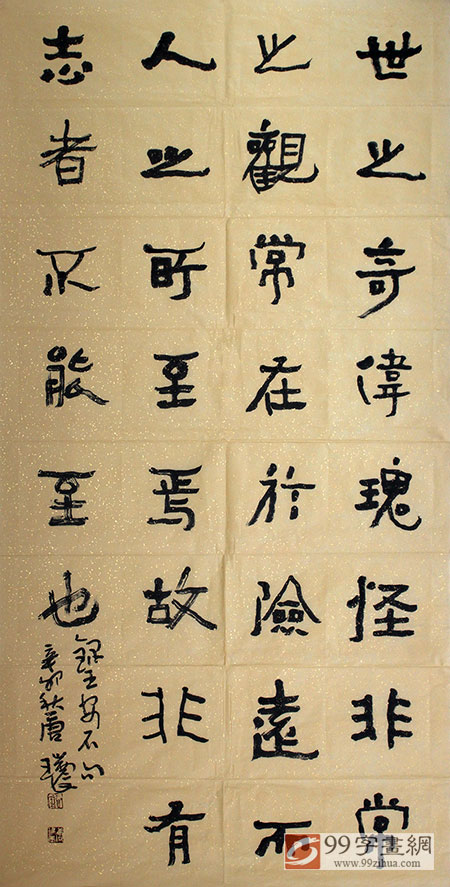 世之奇偉瑰怪非常
之觀常在於險遠不
人之所至焉故非有
志者不能至也
錄王安石句
辛卯秋唐
99字畫網
www.99zihua.com